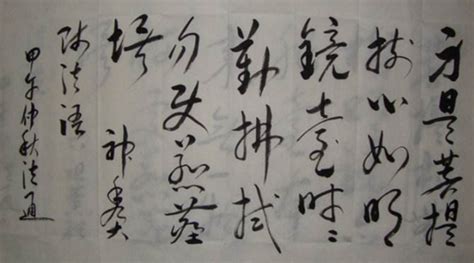 身是菩提
樹心如明
鏡臺時々
勤拂拭
勿使惹塵
埃 神秀大
師法語
甲午仲秋法通